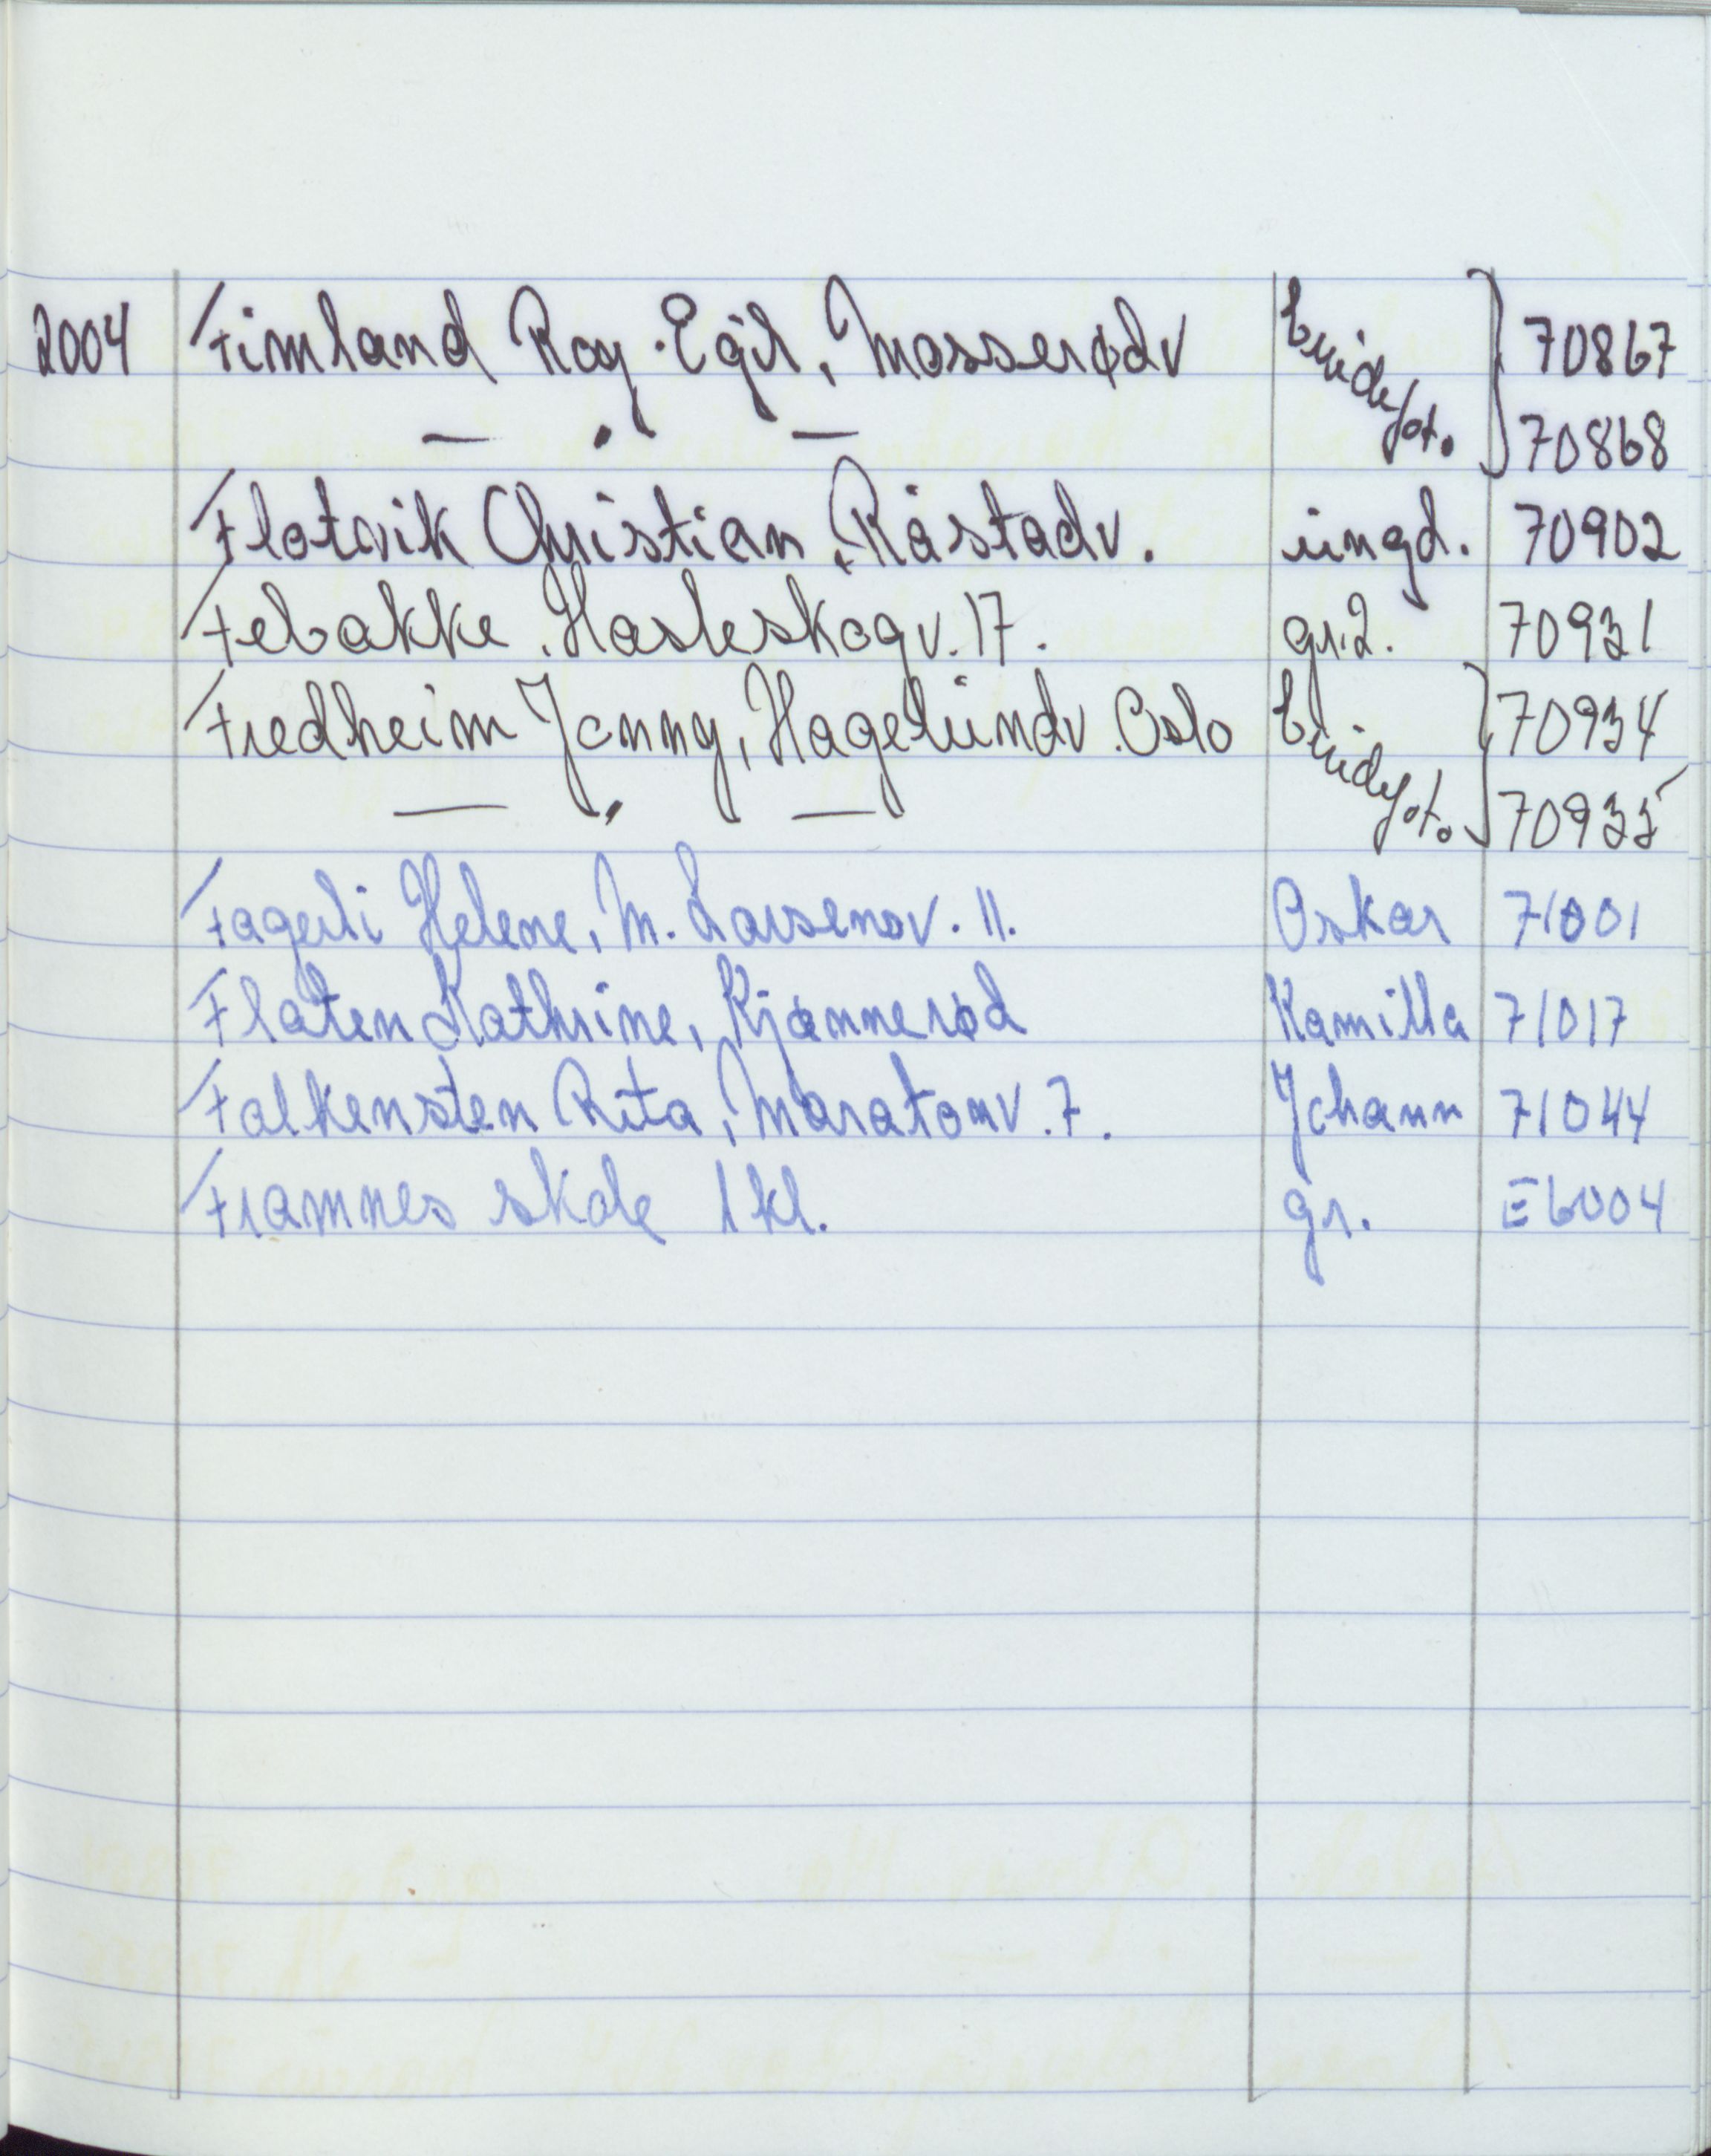 2004 Fimland Roy-Egil, Mosserødv brudefot. 70867
— " — 70868
Flotvik Christian, Råstadv. ungd. 70902
Febakke, Hasleskogv. 17. gr.2. 70931
Fredheim Jonny, Hagelundv. Oslo brudefot. 70934
— " — 70935
Fagerli Helene, M. Larsensv. 11. Oskar 71001
Flaten Kathrine, Kjønnerød Kamilla 71017
Falkensten Rita, Maratonv. 7. Johann 71044
Framnes skole 1 kl. gr. E6004